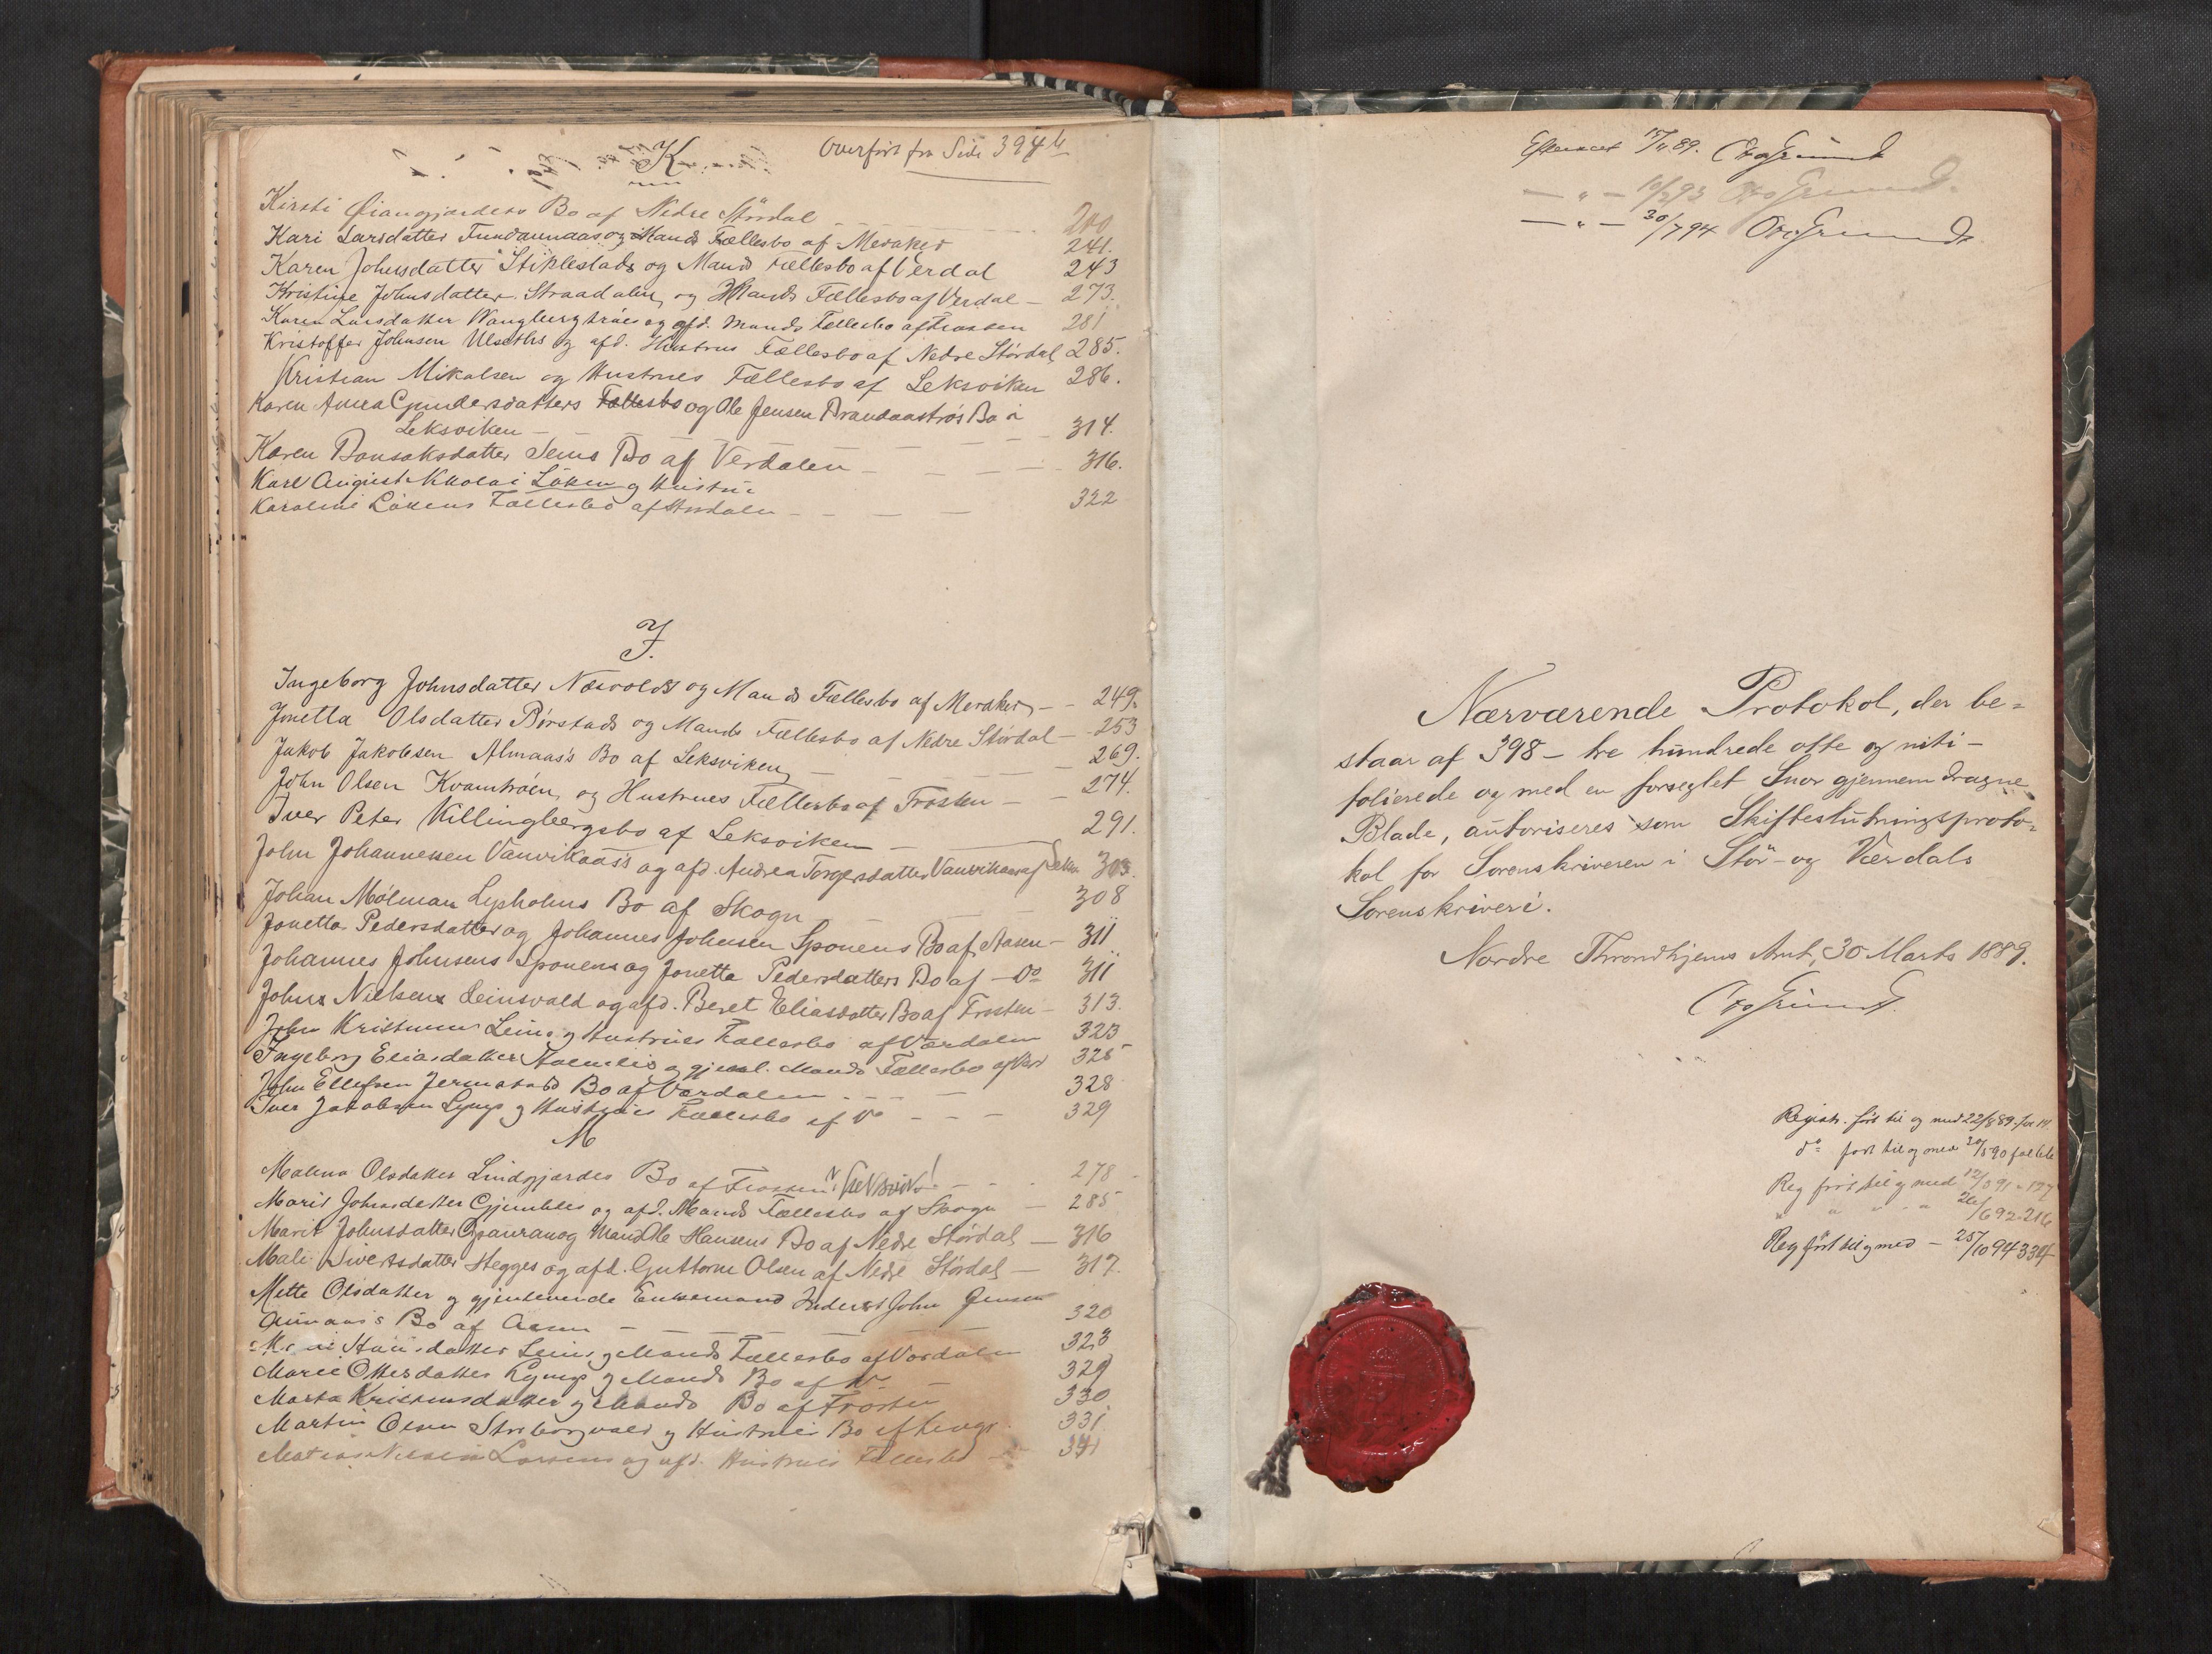 K
Overfört fra Side 394 b
Kirsti Öiangjardets Bo af Nedre Stördal 200
Kari Larsdatter Fundaunaas og Mands Fællesbo af Meraker 241.
Karen Johnsdatter Stiklestads og Mands Fællesbo af Verdal 243
Kristine Johnsdatter Straadalen og Mands Fællesbo af Verdal - 273.
Karen Larsdatter og afd. Mands Fællesbo af Frosten 281
Kristoffer Johnsen Ulseths og afd. Hustrues Fællesbo af Nedre Stördal 285.
Kristian Mikalsen og Hustrues Fællesbo af Leksviken 286.
Karen Anna Gundersdatters og Ole Jensen Bo i
Leksviken - 314.
Karen Bonsaksdatter Sems Bo af Verdalen - 316.
Karl August Nikolai Löken og Hustru
Karoline Lökens Fællesbo af Stordalen - 322
J.
Ingeborg Johnsdatter Næsvolds og Mands Fællesbo af Meraker - 249.
Jonetta Olsdatter Börstads og Mands Fællesbo af Nedre Stördal - 253
Jakob Jakobsen Almaas's Bo af Leksviken - 269.
John Olsen Kvamtröen og Hustrues Fællesbo af Frosten - 274.
Iver Peter Killingbergsbo af Leksviken - 291.
John Johannessen Vanvikaas's og afd. Andrea Torgersdatter Vanvikaas af Leksv. 303.
Johan Mölman Lypholms Bo af Skogn 308
Jonetta Pedersdatter og Johannes Johnsen Sponens Bo af Aasen - 311
Johannes Johnsens Sponens og Jonetta Pedersdatters Bo af - Do 311
John Nielsens Leinsvald og afd. Beret Eliasdatter Bo af Frosten - 313.
John Leins og Hustrues Fællesbo af Værdalen 323
Ingeborg Eliasdatter og gjenl. Mands Fællesbo af 325
John Ellefsen Jermstads Bo af Værdalen - 328
Iver Jakobsen Lyngs og Hustrues Fællesbo af Do - 329
M
Malena Olsdatter Lindgjardes Bo af Frosten (Leksvik!) - 278
Marit Johnsdatter og afd. Mands Fællesbo af Skogn - 285
Marit Johnsdatter og Mand Ole Hansens Bo af Nedre Stördal - 316
Mali Sivertsdatter Hegges og afd. Guttorm Olsen af Nedre Stördal - 317.
Mette Olsdatter og gjenlevende Enkemand John Jensen
Aunaas's Bo af Aasen - 320
Hansdatter Leins og Mands Fællesbo af Værdalen 323
Marie Ottersdatter Lyngs og Mands Bo af Do - 329
Marta Kristensdatter og Mands Bo af Frosten 330
Martin Olsen og Hustrues Bo af 331
og afd. Hustrues Fællesbo - 341
Efterseet 15/11 89. OttoGrundt
- " - 10/2 93 OttoGrundt
- " - 30/7 94 OttoGrundt
Nærværende Protokol, der be=
staar af 398 - tre hundrede otte og niti -
folierede og med en forseglet Snor gjennemdragne
Blade, autoriseres som Skifteslutningsproto=
kol for Sorenskriveren i Stör- og Værdals
Sorenskriveri.
Nordre Throndhjems Amt, 30 Marts 1889.
OttoGrundt.
Registr. fört til og med 22/8 89. fol 14.
do fört til og med 30/5 90
Reg fört til og med 12/8 91 - 127
" " " " 26/6 92. 216
Reg fört til og med - 25/10 94 334